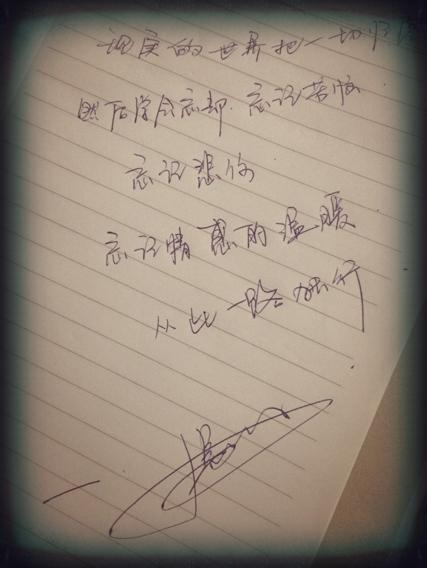 现实的世界把一切归
然后学会忘却.忘记苦恼
忘记想你
忘记情感的温暖
从此一路旅行